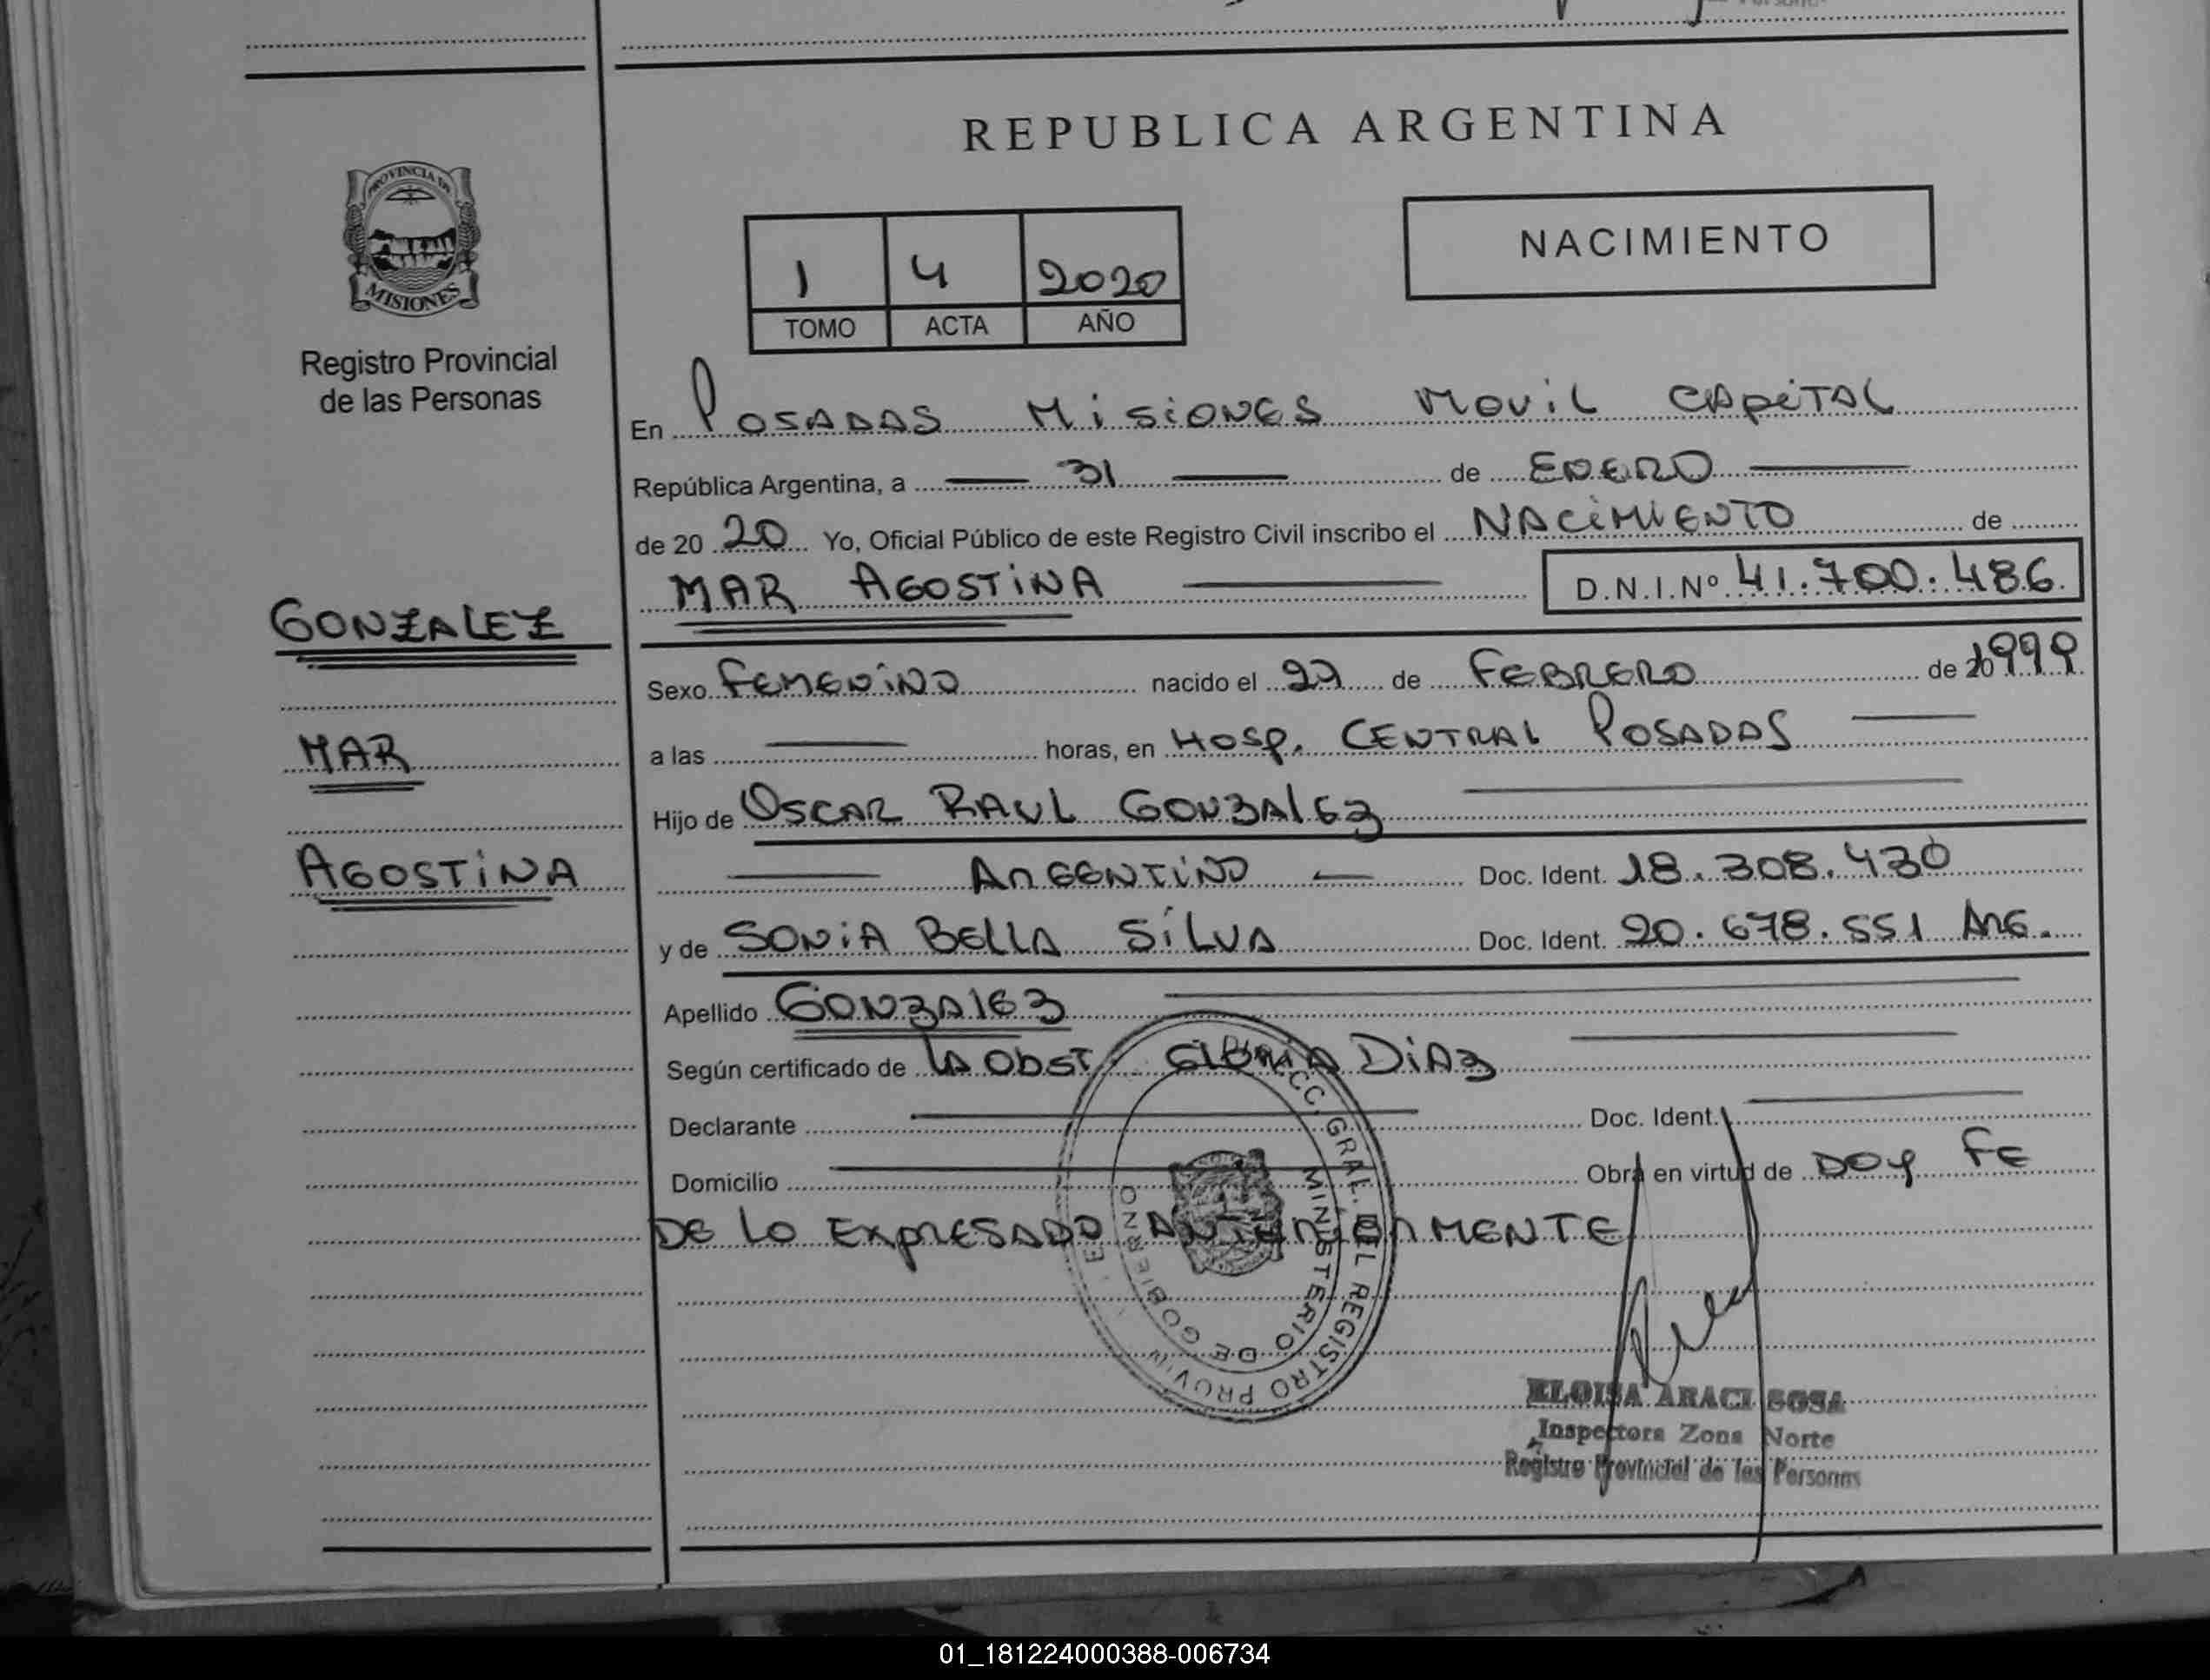 REPUBLICA ARGENTINA
PROVINCIA DE
MISIONES
Registro Provincial
de las Personas
1 4 2020
TOMO ACTA AÑO
NACIMIENTO
En POSADAS MISIONES MOVIL CAPITAL
República Argentina, a 31 de ENERO
de 20 20 Yo, Oficial Público de este Registro Civil inscribo el NACIMIENTO de
MAR AGOSTINA D.N.I.Nº 41.700.486
GONZALEZ
Sexo FEMENINO nacido el 27 de FEBRERO de 1999
MAR
a las horas, en HOSP. CENTRAL POSADAS
Hijo de OSCAR RAUL GONZALEZ
AGOSTINA
ARGENTINO Doc. Ident. 18.308.430
y de SONIA BELLA SILVA Doc. Ident. 20.678.551 ARG.
Apellido GONZALEZ
Según certificado de LA OBST. GLORIA DIAZ
Declarante Doc. Ident.
Domicilio Obra en virtud de DOY FE
DE LO EXPRESADO ANTERIORMENTE
GRAL. DEL REGISTRO PROVIN
MINISTERIO DE GOBIERNO
ELOISA ARACI SOSA
Inspectora Zona Norte
Registro Provincial de las Personas
01_181224000388-006734